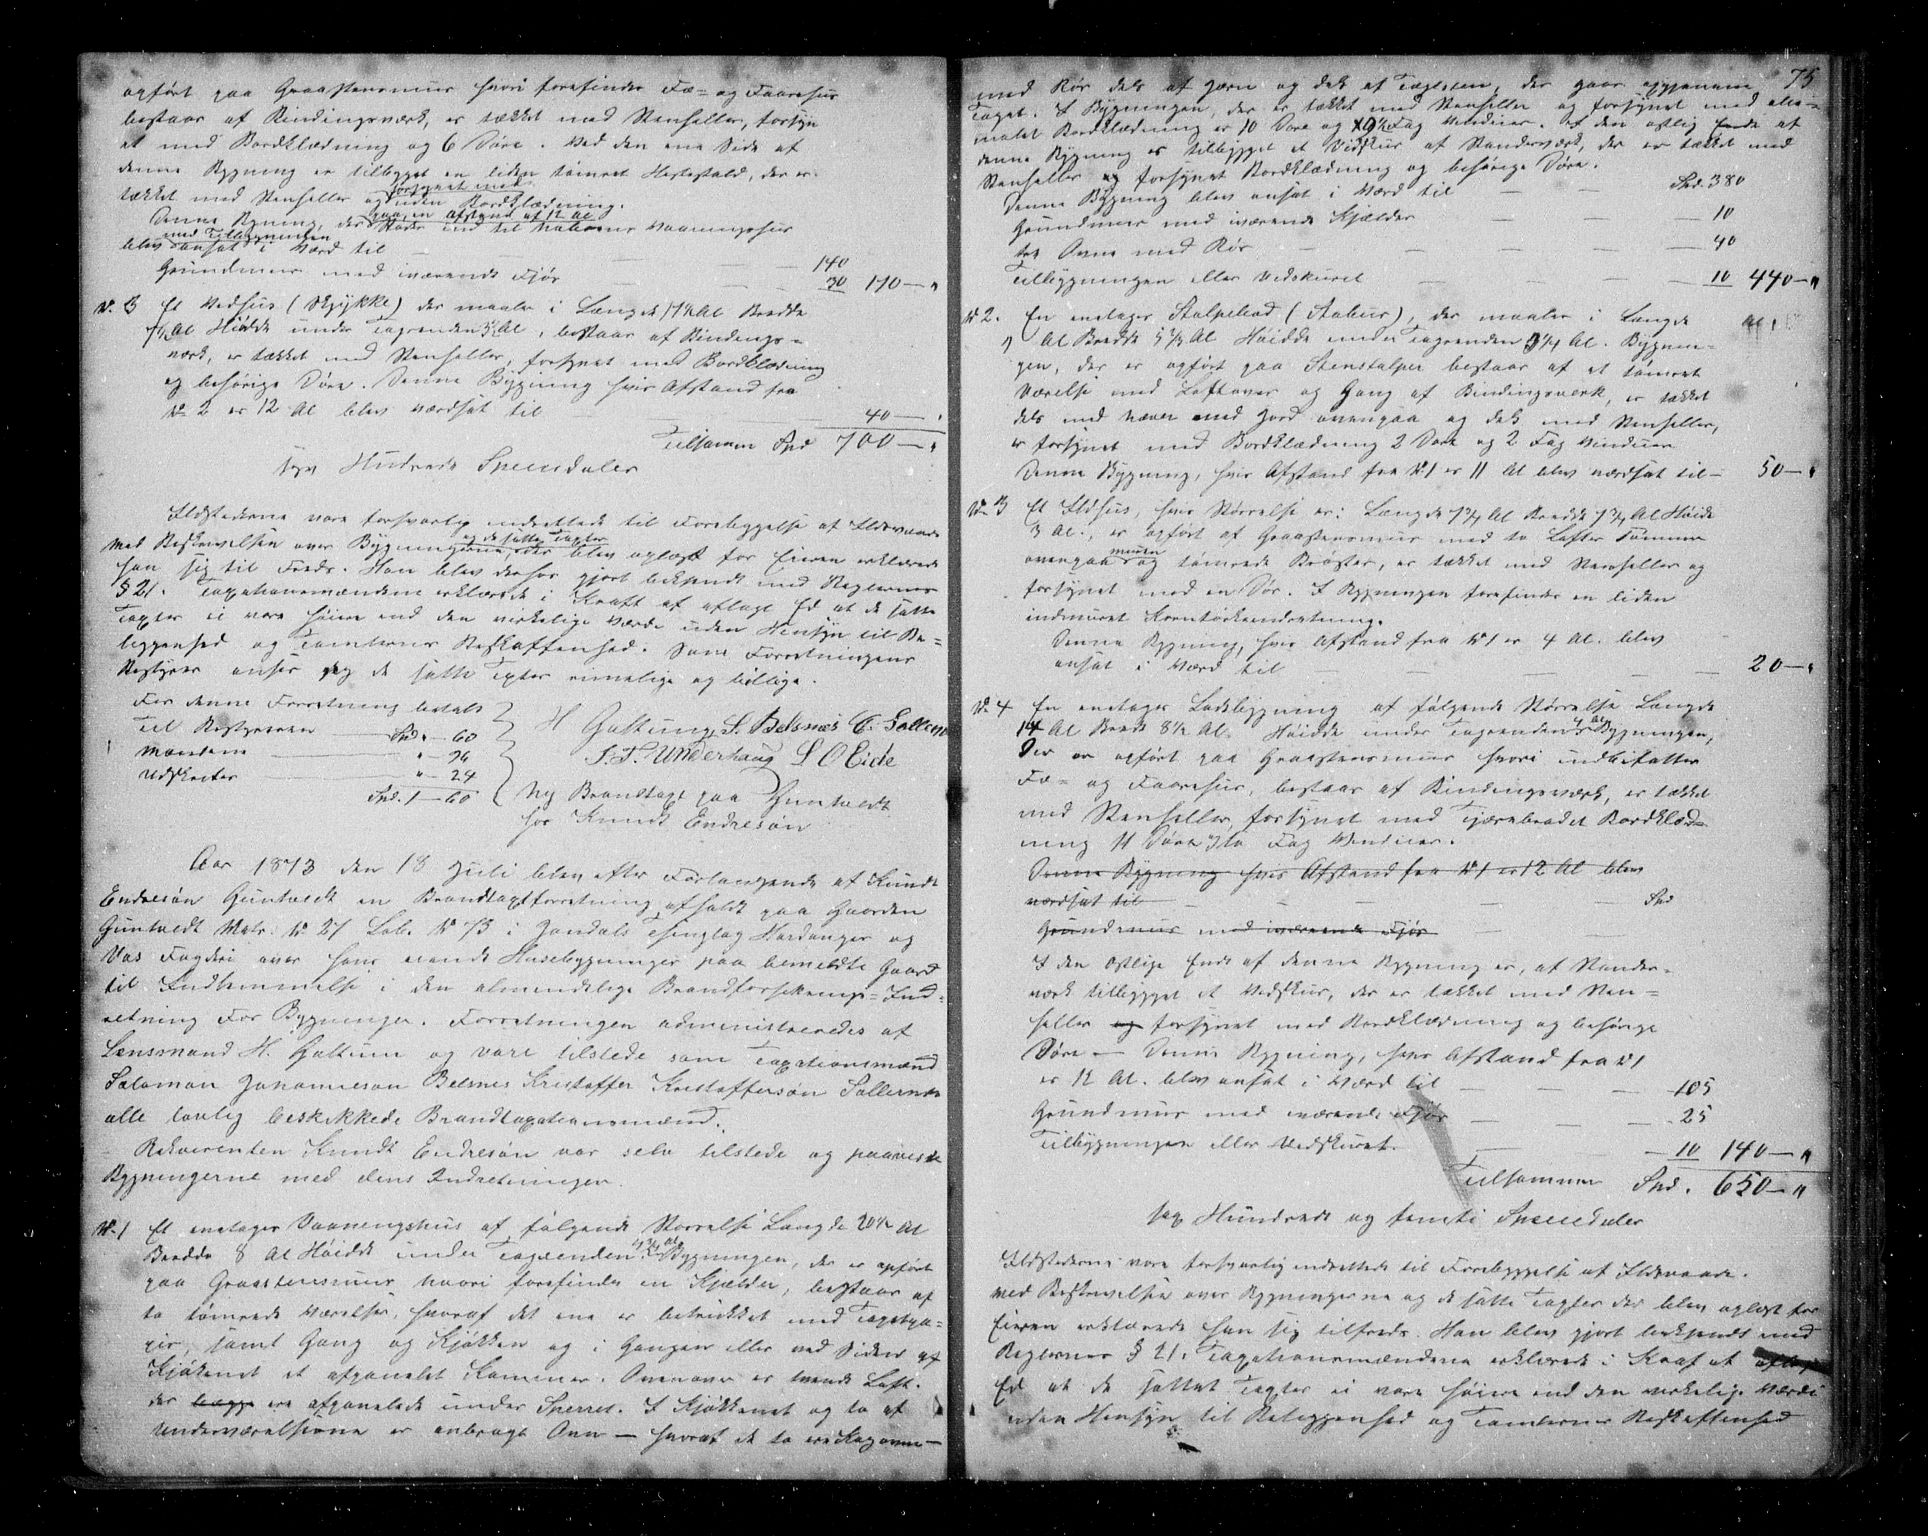 opført paa Graastensmuur hvori forefindes Fæ- og Faarehus
bestaar af Bindingsværk, er tækket med Stenheller, forsyn
et med Bordklædning og 6 Døre. Ved den ene Side af
denne Bygning er tilbygget en liden tømret Hestestald, der er
tækket med Stenheller og forsynet med uden Bordklædning.
Denne Bygning, der staar paa en Afstand af 12 Al ind til Naboens Vaaningshus
blev med Tilbygningen ansat i Værd til — 140
Grundmuur med iværende Fjøs — 30 170 — "
No. 3 Et Vedhus (Skykke) der maaler i Længde 17½ Al Bredde
7½ Al Høide under Tagrenden 3½ Al, bestaar af Bindings-
værk, er tækket med Stenheller, forsynet med Bordklædning
og behørige Døre. Denne Bygning hvis Afstand fra
No 2 er 12 Al blev værdsat til — 40 — "
Tilsammen Spd 700 — "
syv Hundrede Speciedaler
Ildstederne vare forsvarlig indrettede til Forebyggelse af Ildsvaade
Med Beskrivelsen over Bygningerne og de satte Taxter, der blev oplæst for Eieren erklærede
han sig tilFreds. Han blev derhos gjort bekjendt med Reglernes
§ 21. Taxationsmændene erklærede i Kraft af aflagt Ed at de satte
Taxter ei vare høiere end den virkelige Værdi uden Hensyn til Be-
liggenhed og Tomternes Beskaffenhed. Som Forretningens
Bestyrer anser jeg de satte Taxter rimelige og billige.
For denne Forretning betalt
Til Bestyreren — Spd " - 60
Mændene — " - 96
Udskrifter — " - 24
Spd. 1 - 60
H Galtung, S. Belsnæs C. Sallernes
J. T. Underhaug L O Eide
Ny Brandtaxt paa Guntvedt
for Knudt Endresøn
Aar 1873 den 18 Juli blev efter Forlangende af Knudt
Endresøn Guntvedt en Brandtaxtforretning afholdt paa Gaarden
Guntvedt Matr. No 27 Løb. No 73 i Jondals Thinglag Hardanger og
Vos Fogderi over hans eiende Husebygninger paa bemeldte Gaard
til Indlemmelse i den almindelige Brandforsikrings-Ind-
retning For Bygninger. Forretningen administreredes af
Lensmand H. Galtung og vare tilstede som Taxationsmænd
Salomon Johannesøn Belsnes Kristoffer Kristoffersøn Sallernes
alle lovlig beskikkede Brandtaxationsmænd.
Rekvirenten Knudt Endresøn var selv tilstede og paaviste
Bygningerne med dens Indretninger.
No. 1 Et enetages Vaaningshus af følgende Størrelse Længde 20½ Al
Bredde 8 Al Høide under Tagrenden 4¾ Al Bygningen, der er opført
paa Graastensmuur hvori forefindes en Kjælder, bestaar af
to tømrede Værelser, hvoraf det ene er betrukket med Tapetpa-
pir, samt Gang og Kjøkken og i Gangen eller ved Siden af
Kjøkenet et afpanelet Kammer. Ovenover er tvende Loft.
der begge ere afpanelede under Sperret. I Kjøkkenet og to af
Underværelserne er anbragt Ovn — hvoraf de to ere Kogovne —
75
med Rør dels af Jern og dels af Teglsten, der gaar igjennem
Taget. I Bygningen, der er tækket med Stenheller og forsynet med olie-
malet Bordklædning er 10 Døre og 9½ Fag Vinduer. Af den østlig Ende af
denne Bygning er tilbygget et Vedskur af Standerværk, der er tækket med
Stenheller og forsynet Bordklædning og behørige Døre.
Denne Bygning blev ansat i Værd til — Spd. 380
Grundmuur med iværende Kjælder — 10
tre Ovne med Rør — 40
Tilbygningen eller Vedskuret — 10 440 — "
No 2. En enetages Stolpebod (Stabur), der maaler i Længde
7 Al Bredde 5¾ Al Høide under Tagrenden 3¼ Al. Bygnin-
gen, der er opført paa Stenstolper bestaar af et tømret
Værelse med Loftover og Gang af Bindingsværk, er tækket
dels med Næver med Jord ovenpaa og dels med Stenheller,
er forsynet med Bordklædning 2 Døre og 2 Fag Vinduer
Denne Bygning, hvis Afstand fra No 1 er 11 Al blev værdsat til — 50 — "
No. 3 Et Ildhus, hvis Størrelse er: Længde 7¾ Al Bredde 7¾ Al Høide
3 Al., er opført af Graastensmuur med to Lofter Tømmer
ovenpaa muren og tømrede Brøster, er tækket med Stenheller og
forsynet med en Dør. I Bygningen forefindes en liden
indmuret Korntørkeindretning.
Denne Bygning, hvis Afstand fra No 1 er 4 Al. blev
ansat i Værd til — 20 — "
No. 4 En enetages Ladebygning af følgende Størrelse Længde
14 Al Bredde 8½ Al. Høide under Tagrenden 4 Al Bygningen,
Der er opført paa Graastensmuur hvori indbefattes
Fæ- og Faarehus, bestaar af Bindingsværk, er tækket
med Stenheller, forsynet med Tjærebredet Bordklæd-
ning 11 Døre og to Fag Vinduer.
Denne Bygning hvis Afstand fra No 1 er 12 Al blev
værdsat til — Spd
Grundmuur med iværende Fjøs
I den Østlige Ende af denne Bygning er, af Stander-
værk tilbygget et Vedskur, der er tækket med Sten-
heller og forsynet med Bordklædning og behørige
Døre — Denne Bygning, hvis Afstand fra No 1
er 12 Al. blev ansat i Værd til — 105
Grundmuur med iværende Fjøs — 25
Tilbygningen eller Vedskuret. — 10 140 — "
Tilsammen Spd. 650 — "
sex Hundrede og femti Speciedaler
Ildstederne vare forsvarlig indrettede til Forebyggelse af Ildsvaade.
Med Beskrivelsen over Bygningerne og de satte Taxter der blev oplæst for
Eieren erklærede han sig tilfreds. Han blev gjort bekjendt med
Reglernes § 21. Taxationsmændene erklærede i Kraf af aflagt
Ed at de sattet Taxter ei vare høiere end den virkelige Værdi
uden Hensyn til Beliggenhed og Tomternes Beskaffenhed